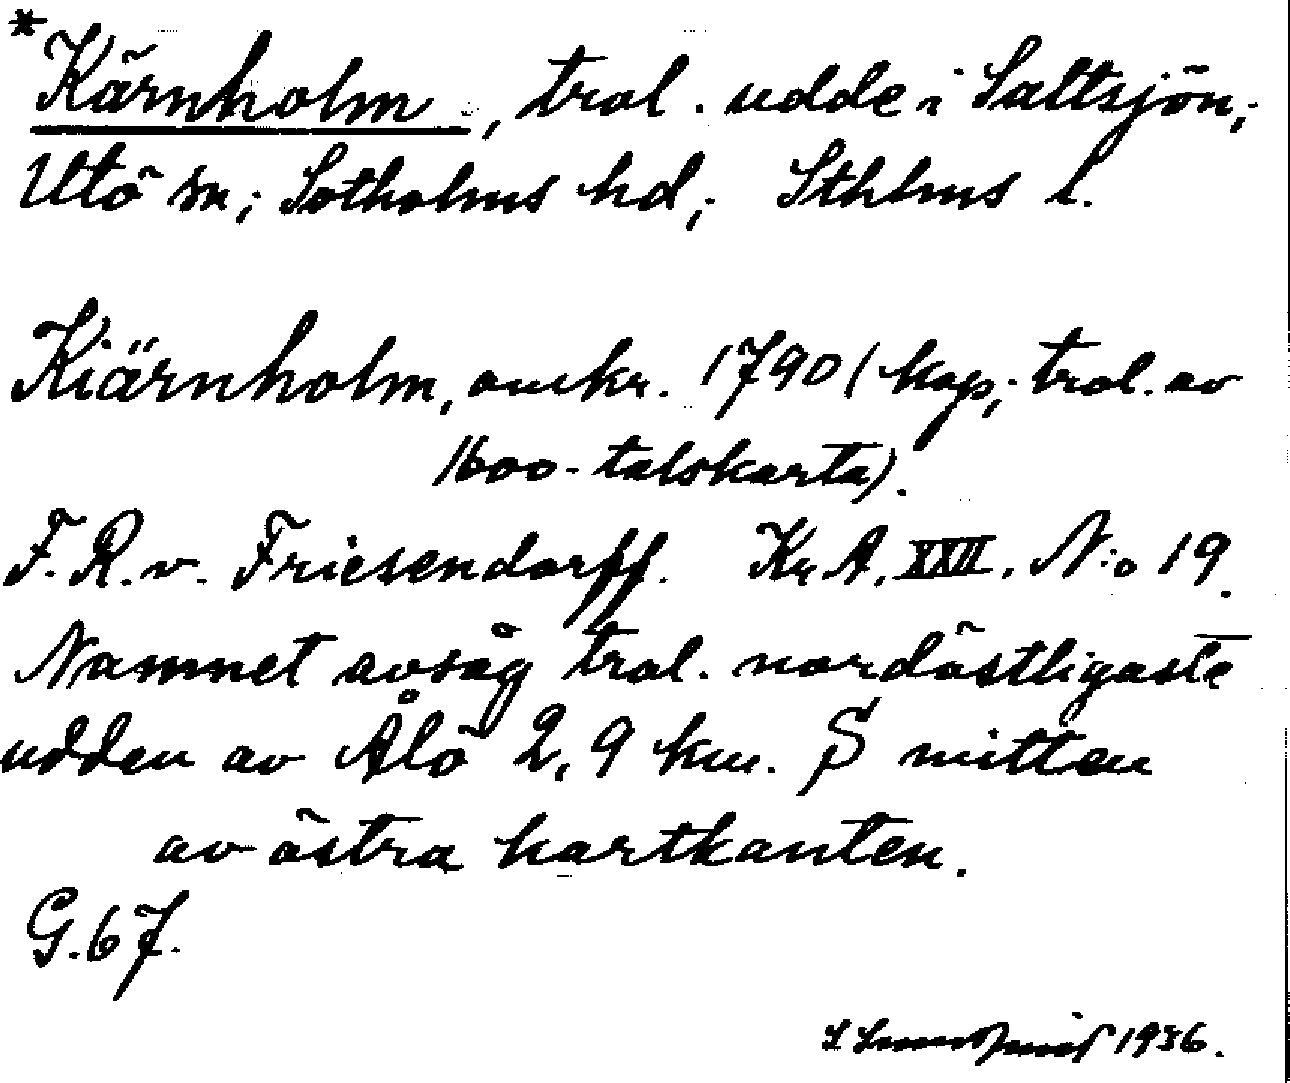 *Kärnholm, trol. udde i Saltsjön,
Utö sn; Sotholms hd; Sthlms l.
Kiärnholm, omkr. 1790 (kop; trol. av
1600-talskarta).
F. R. v. Friesendorff. Kr A. XXII. N:o 19.
Namnet avsåg trol. nordöstligaste
udden av Ålö 2,9 km. S mitten
av östra kartkanten.
G. 67.
1936.